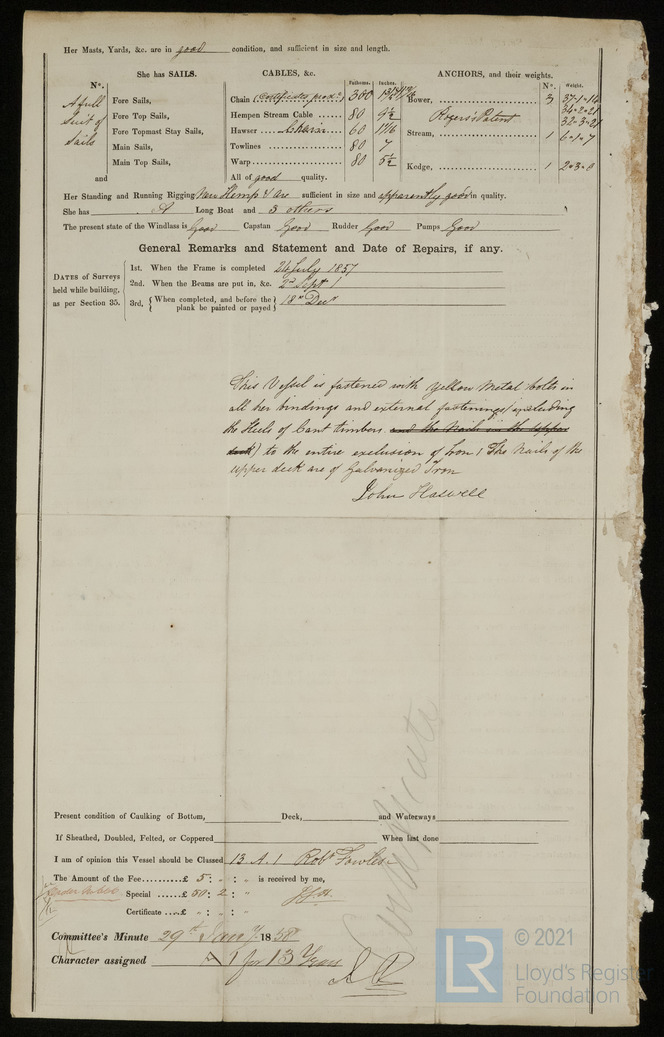 Her Masts, Yards, &c. are in good condition, and sufficient in size and length.
She has SAILS.
CABLES, &c.
ANCHORS, and their weights.
N°.
Fathoms.
Inches.
N°.
Weight.
A full Suit of Sails
Fore Sails,
Fore Top Sails,
Fore Topmast Stay Sails,
Main Sails,
Main Top Sails,
and
Chain (Certificates prod.d) 300
Hempen Stream Cable 80 9½
Hawser Chain 60 11/16
Towlines 80 7
Warp 80 5½
All of good quality.
Bower, 3 37-1-14
34-2-21
32-3-21
Rogers's Patent
Stream, 1 6-1-7
Kedge, 1 2-3-0
Her Standing and Running Rigging New Hemp & are sufficient in size and apparently good in quality.
She has A Long Boat and 3 others
The present state of the Windlass is Good Capstan Good Rudder Good Pumps Good
General Remarks and Statement and Date of Repairs, if any.
DATES of Surveys held while building, as per Section 35.
1st. When the Frame is completed 24 July 1857
2nd. When the Beams are put in, &c. 2d Sept
3rd, When completed, and before the plank be painted or payed 18th Decr
This Vessel is fastened with Yellow Metal bolts in
all her bindings and external fastenings (excluding
the Heels of Cant timbers and the Nails in the upper
deck) to the entire exclusion of Iron / The Nails of the
upper deck are of Galvanized Iron
John Haswell
Certificate
Present condition of Caulking of Bottom, Deck, and Waterways
If Sheathed, Doubled, Felted, or Coppered When last done
I am of opinion this Vessel should be Classed 13 A.1 Robt Fowles.
The Amount of the Fee £ 5 : " : " is received by me,
Special £ 50 : 2 : "
Certificate £ " : " : "
Committee's Minute 29th Jany 1858
Character assigned A 1 for 13 Years
© 2021
LR
Lloyd's Register
Foundation